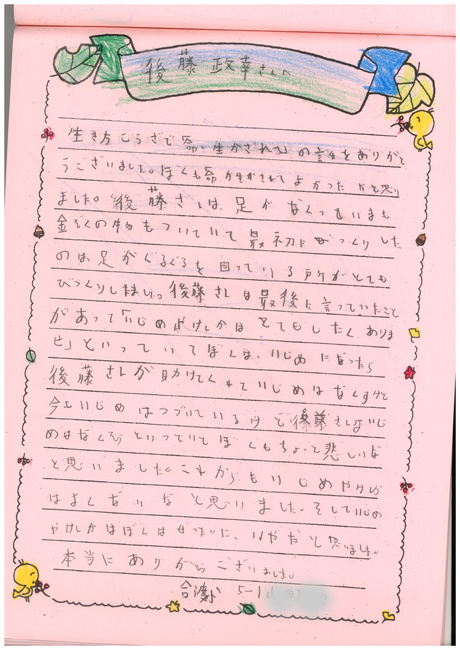 後藤 政幸さんへ
生き方こうざで「命、生かされる」の言葉をありがと
うございました。ぼくも命が生かされてよかったなと思い
ました。後藤さんは足がなくっても
金ぞくの物もついていて最初にびっくりした
のは足がぐるぐるを回っている所がとても
びっくりしました。後藤さんは最後に言っていたこと
があって「いじめやけんかはとてもしたくありま
せん」といっていてぼくは、いじめになったら
後藤さんが助けてくれていじめはなくすけど
今もいじめはつづいているけど後藤さんはいじ
めはなくそうといっていてぼくもちょっと悲しいな
と思いました。これからもいじめやけんか
はよくないなと思いました。そしていじめ
やけんかはぼくは いやだと思いました。
本当にありがとうございました。
5-1